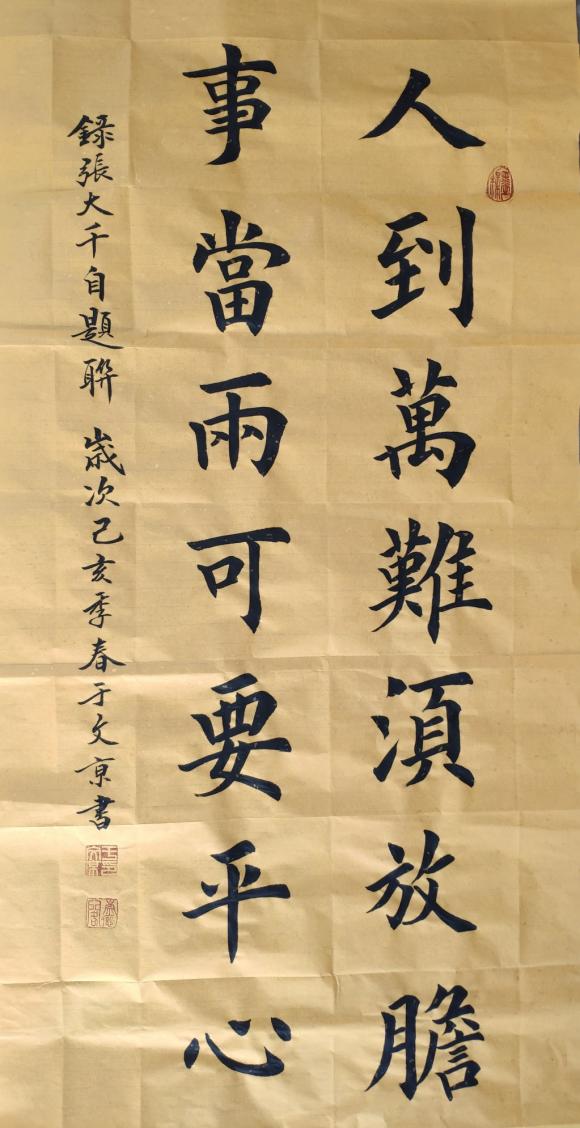 人到萬難須放膽
事當兩可要平心
錄張大千自題聯 歲次己亥季春于文京書